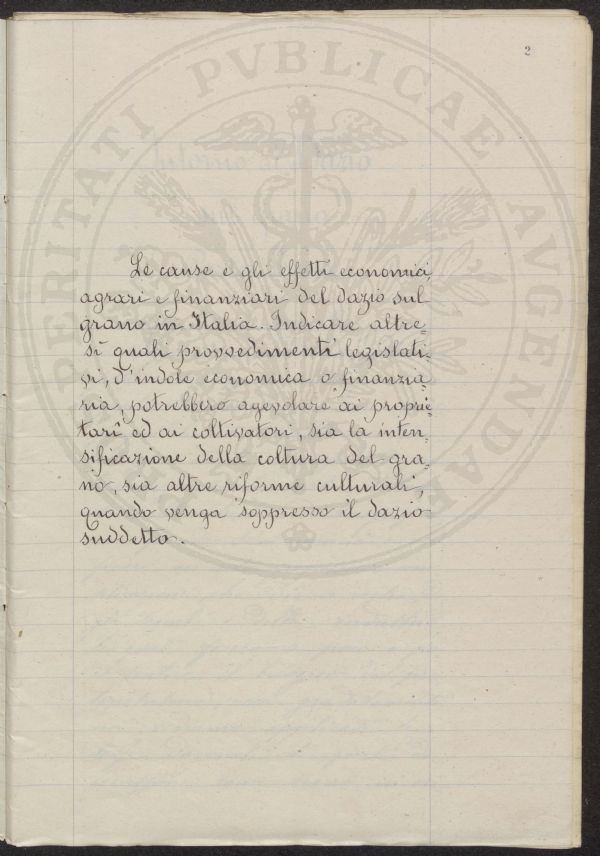 2
PERITATI PVBLICAE AVGENDAE
Le cause e gli effetti economici,
agrari e finanziari del dazio sul
grano in Italia. Indicare altre=
sì quali provvedimenti legislati=
vi, d'indole economica o finanzia=
ria, potrebbero agevolare ai proprie=
tarî ed ai coltivatori, sia la inten=
sificazione della coltura del gra=
no, sia altre riforme culturali,
quando venga soppresso il dazio
suddetto.